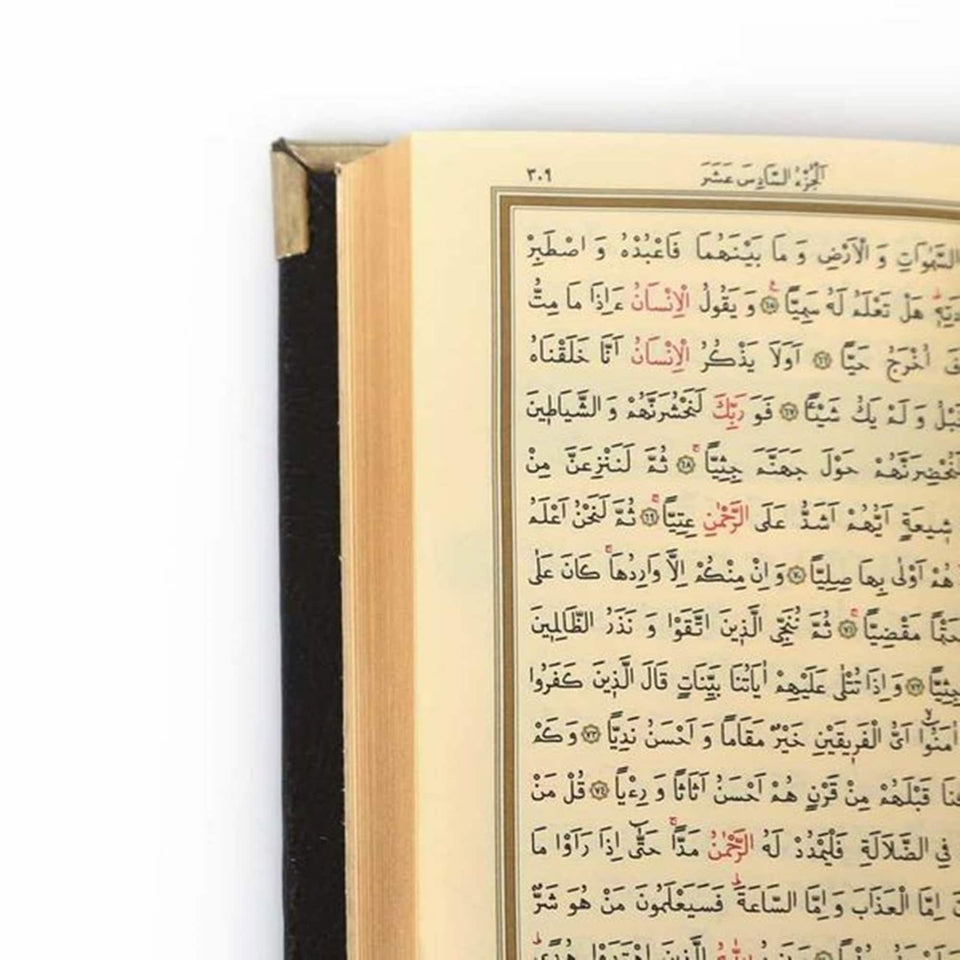 ٣٠٩ الْجُزْءُ السَّادِسَ عَشَرَ
السَّمٰوَاتِ وَ الْاَرْضِ وَ مَا بَيْنَهُمَا فَاعْبُدْهُ وَ اصْطَبِرْ
هَلْ تَعْلَمُ لَهُ سَمِيًّا ﴿٦٥﴾ وَ يَقُولُ الْاِنْسَانُ ءَاِذَا مَا مِتُّ
اُخْرَجُ حَيًّا ﴿٦٦﴾ اَوَلَا يَذْكُرُ الْاِنْسَانُ اَنَّا خَلَقْنَاهُ
وَ لَمْ يَكُ شَيْـًٔا ﴿٦٧﴾ فَوَ رَبِّكَ لَنَحْشُرَنَّهُمْ وَ الشَّيَاطٖينَ
لَنُحْضِرَنَّهُمْ حَوْلَ جَهَنَّمَ جِثِيًّا ﴿٦٨﴾ ثُمَّ لَنَنْزِعَنَّ مِنْ
شٖيعَةٍ اَيُّهُمْ اَشَدُّ عَلَى الرَّحْمٰنِ عِتِيًّا ﴿٦٩﴾ ثُمَّ لَنَحْنُ اَعْلَمُ
هُمْ اَوْلٰى بِهَا صِلِيًّا ﴿٧٠﴾ وَ اِنْ مِنْكُمْ اِلَّا وَارِدُهَا كَانَ عَلٰى
حَتْمًا مَقْضِيًّا ﴿٧١﴾ ثُمَّ نُنَجِّى الَّذٖينَ اتَّقَوْا وَ نَذَرُ الظَّالِمٖينَ
جِثِيًّا ﴿٧٢﴾ وَ اِذَا تُتْلٰى عَلَيْهِمْ اٰيَاتُنَا بَيِّنَاتٍ قَالَ الَّذٖينَ كَفَرُوا
اٰمَنُوا اَىُّ الْفَرٖيقَيْنِ خَيْرٌ مَقَامًا وَ اَحْسَنُ نَدِيًّا ﴿٧٣﴾ وَ كَمْ
قَبْلَهُمْ مِنْ قَرْنٍ هُمْ اَحْسَنُ اَثَاثًا وَ رِءْيًا ﴿٧٤﴾ قُلْ مَنْ
فِى الضَّلَالَةِ فَلْيَمْدُدْ لَهُ الرَّحْمٰنُ مَدًّا حَتّٰى اِذَا رَاَوْا مَا
اِمَّا الْعَذَابَ وَ اِمَّا السَّاعَةَ فَسَيَعْلَمُونَ مَنْ هُوَ شَرٌّ